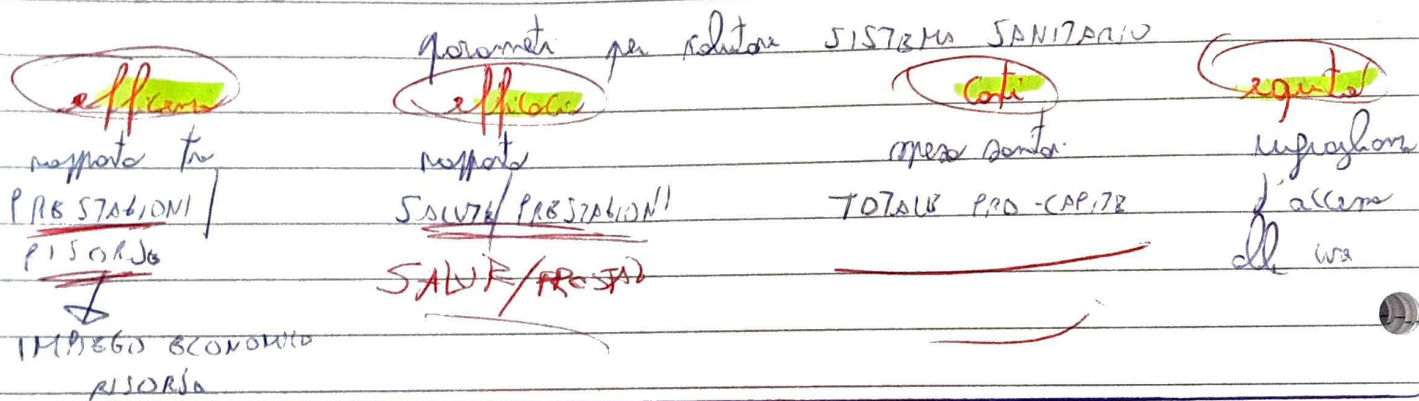 parametri per valutare SISTEMA SANITARIO
efficienza
rapporto tra
PRESTAZIONI /
RISORSE
IMPIEGO ECONOMICO
RISORSE
efficacia
rapporto
SALUTE/PRESTAZIONI
SALUTE/PRESTAZ
costi
spesa sanitar.
TOTALE PRO-CAPITE
equità
d'accesso
alle cure